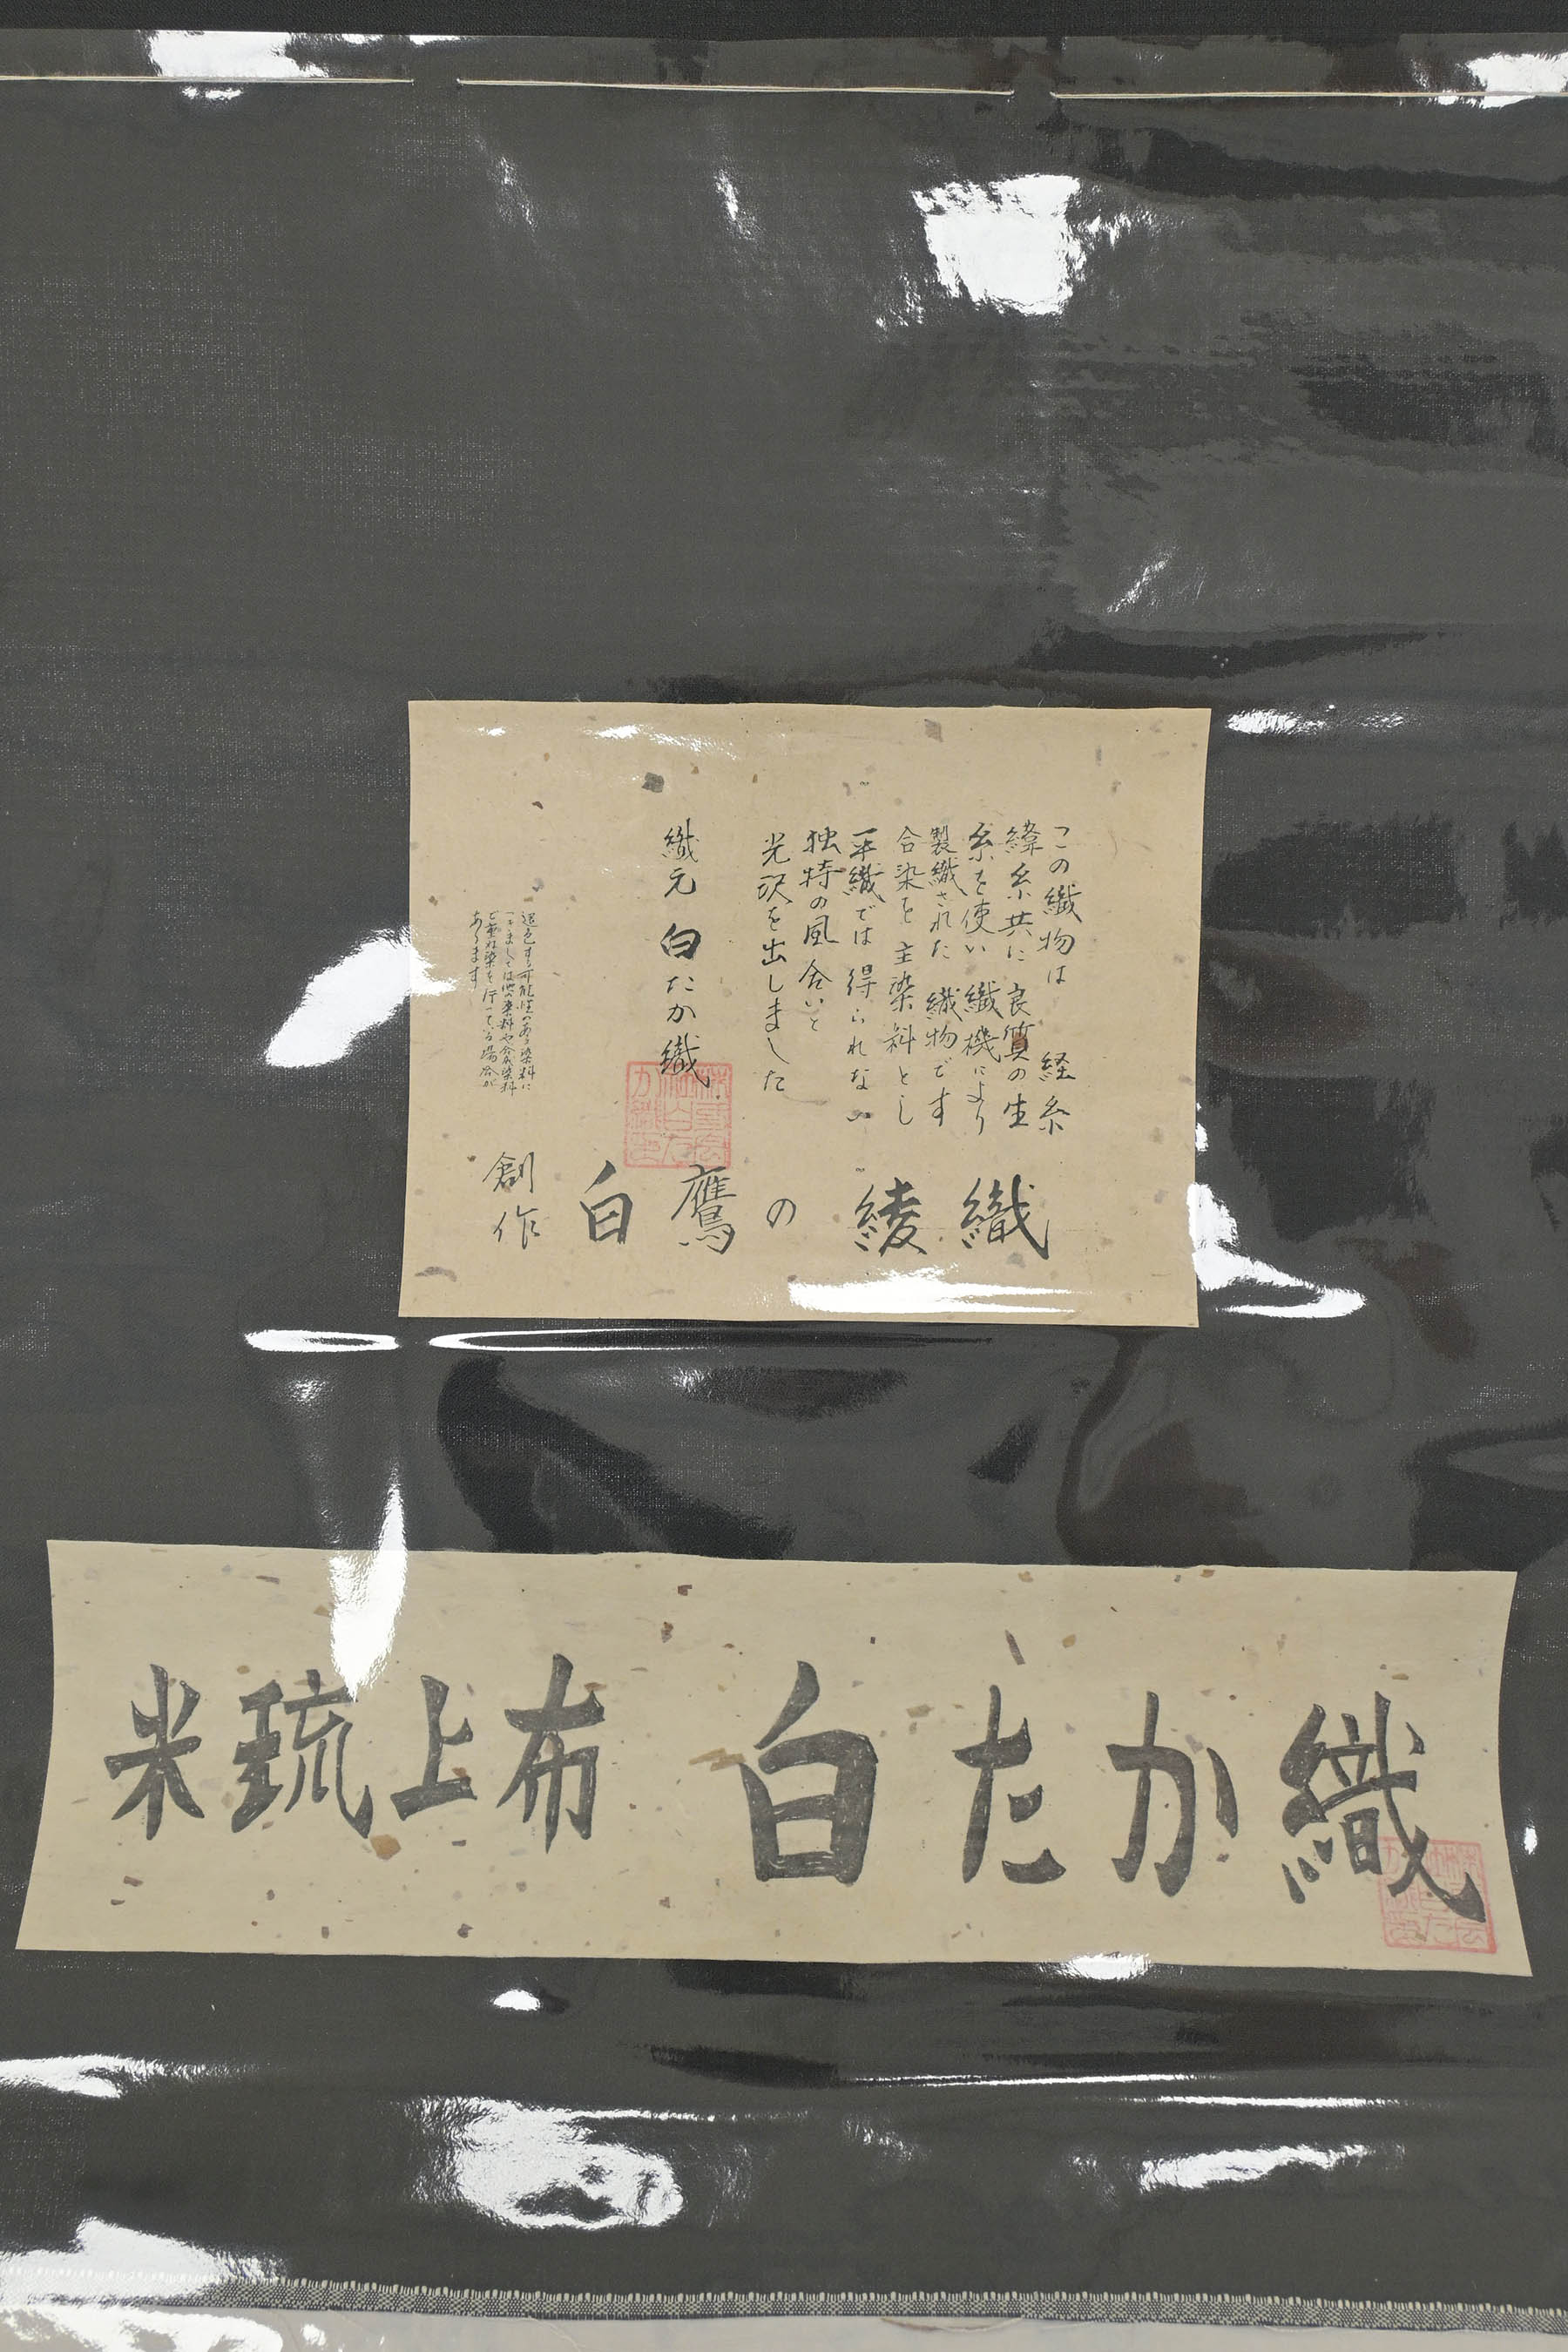 この織物は 経糸
緯糸共に 良質の生
糸を使い 織機により
製織された 織物です
合染を 主染料とし
平織では 得られない
独特の風合いと
光沢を出しました
織元 白たか織
退色する可能性のある染料に
つきましては他の染料や合成染料
と重ね染を行っている場合が
あります
創作 白鷹の 綾織
米琉上布 白たか織